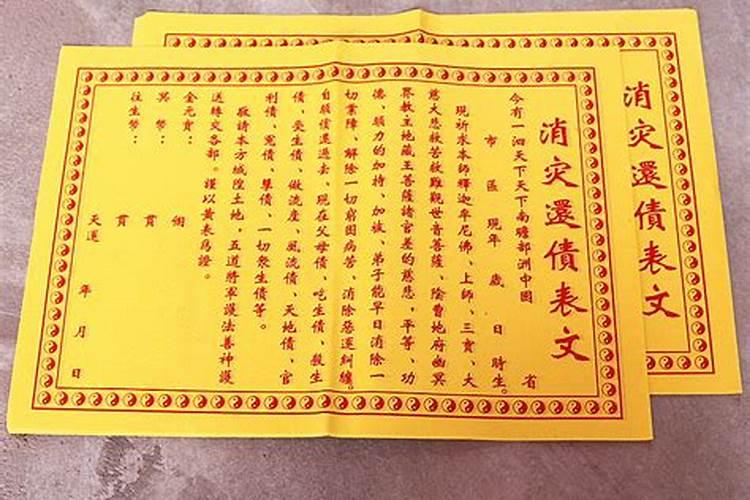 消灾還債表文
今有一泗天下天下南贍部洲中國 省
市 區 現年 歲 日 時生。
現祈求本師釋迦牟尼佛、上師、三寶、大
慈大悲救苦救難觀世音菩薩、陰曹地府幽冥
界教主地藏王菩薩諸官差的慈悲,平等、功
德、願力的加持、加被、弟子能早日消除一
切業障、解除一切窮困病苦、消除惡運糾纏。
自願償還過去、現在父母債、吃生債、殺生
債、受生債、做流產、風流債、天地債、官
利債、冤債、孽債、一切眾生債等。
敬請本方城隍土地,五道將軍護法善神護
送轉交各部。謹以黃表為證。
金元寶: 個
冥 幣: 貫
往生幣: 貫
天運 年 月 日
消灾還債表文